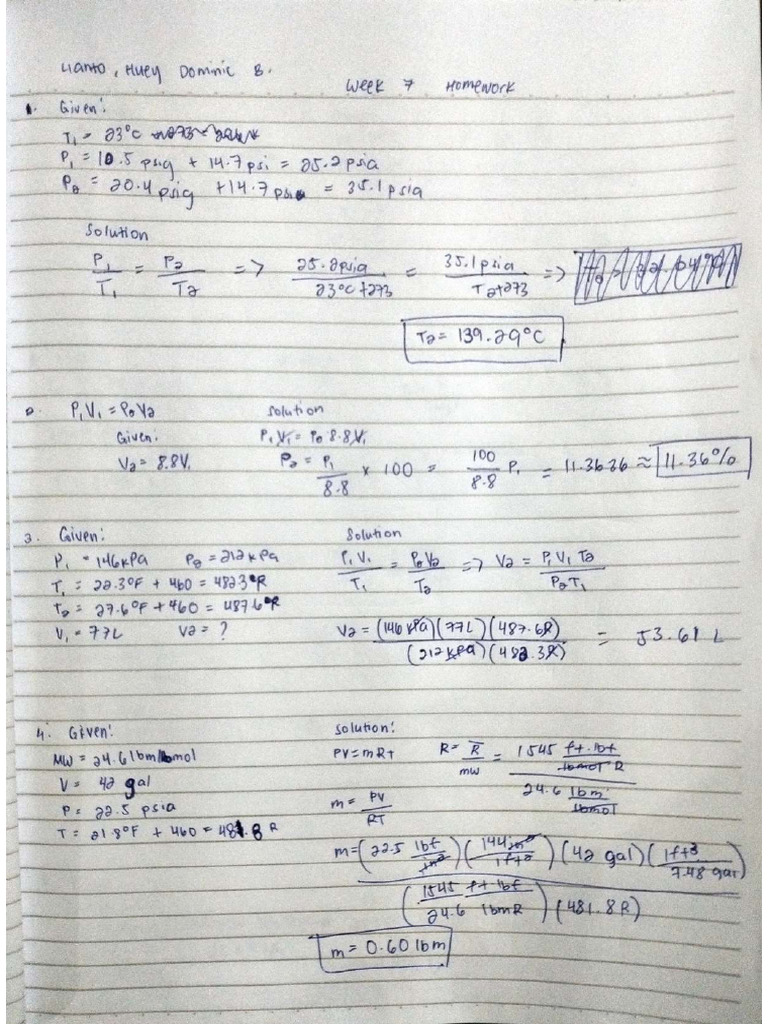 Lianto, Huey Dominic B.
Week 7 Homework
1. Given:
T₁ = 23°C
P₁ = 10.5 psig + 14.7 psi = 25.2 psia
P₂ = 20.4 psig + 14.7 psi = 35.1 psia
Solution
P₁/T₁ = P₂/T₂ => 25.2psia/23°C+273 = 35.1psia/T₂+273 =>
T₂ = 139.29°C
2. P₁V₁ = P₂V₂ Solution
Given: P₁V₁ = P₂ 8.8V₁
V₂ = 8.8V₁ P₂ = P₁/8.8 x 100 = 100/8.8 P₁ = 11.3636 ≈ 11.36%
3. Given: Solution
P₁ = 146kPa P₂ = 212kPa P₁V₁/T₁ = P₂V₂/T₂ => V₂ = P₁V₁T₂/P₂T₁
T₁ = 22.3°F + 460 = 482.3°R
T₂ = 27.6°F + 460 = 487.6°R
V₁ = 77L V₂ = ? V₂ = (146 kPa)(77L)(487.6R)/(212kPa)(482.3R) = 53.61 L
4. Given: Solution:
MW = 24.6 lbm/lbmol PV = mRT R = R̅/MW = 1545 ft.lbf/lbmol R / 24.6 lbm/lbmol
V = 42 gal
P = 22.5 psia m = PV/RT
T = 21.8°F + 460 = 481.8 R
m = (22.5 lbf/in²)(144in²/1ft²)(42 gal)(1ft³/7.48 gal)/(1545 ft lbf/24.6 lbmR)(481.8R)
m = 0.60 lbm